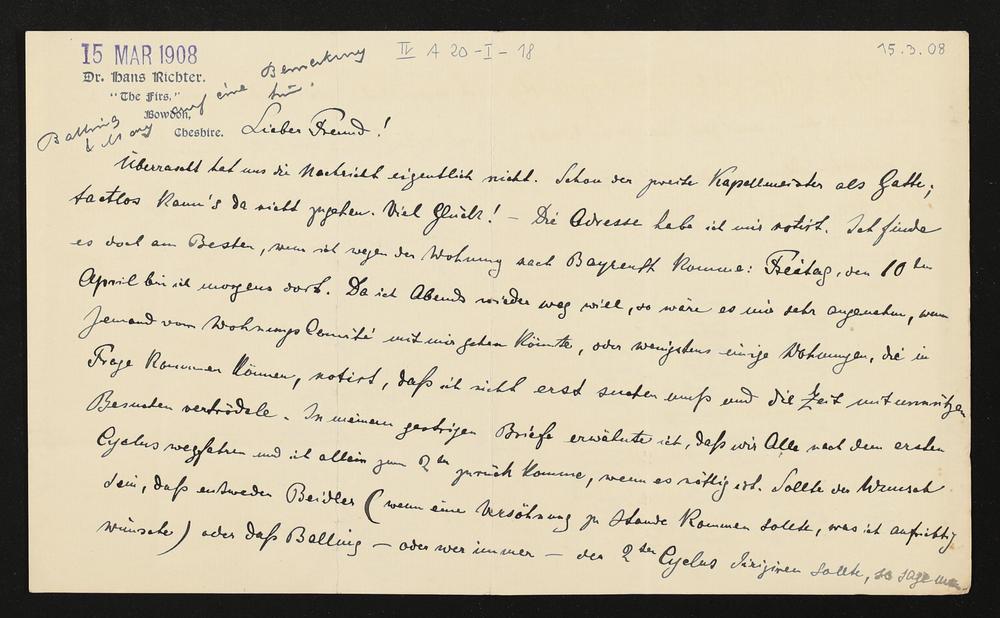 15 MAR 1908
IV A 20-I-18
15.3.08
Dr. Hans Richter.
"The Firs,"
Bowdon,
Cheshire.
Balling
auf eine Bemerkung
hin.
Lieber Freund!
Überrascht hat uns die Nachricht eigentlich nicht. Schon der zweite Kapellmeister als Gatte;
tactlos kann's da nicht zugehen. Viel Glück! – Die Adresse habe ich mir notirt. Ich finde
es doch am Besten, wenn ich wegen der Wohnung nach Bayreuth komme: Freitag, den 10ten
April bin ich morgens dort. Da ich Abends wieder weg will, so wäre es mir sehr angenehm, wenn
Jemand vom WohnungsComité mit mir gehen könnte, oder wenigstens einige Wohnungen, die in
Frage kommen können, notirt, daß ich nicht erst suchen muß und die Zeit mit unnützen
Besuchen vertrödele. – In meinem gestrigen Briefe erwähnte ich, daß wir Alle nach dem ersten
Cyclus wegfahren und ich allein zum 2ten zurück komme, wenn es nöthig ist. Sollte der Wunsch
sein, daß entweder Beidler (wenn eine Versöhnung zu Stande kommen sollte, was ich aufrichtig
wünsche) oder daß Balling – oder wer immer – den 2ten Cyclus dirigiren sollte, so sage man